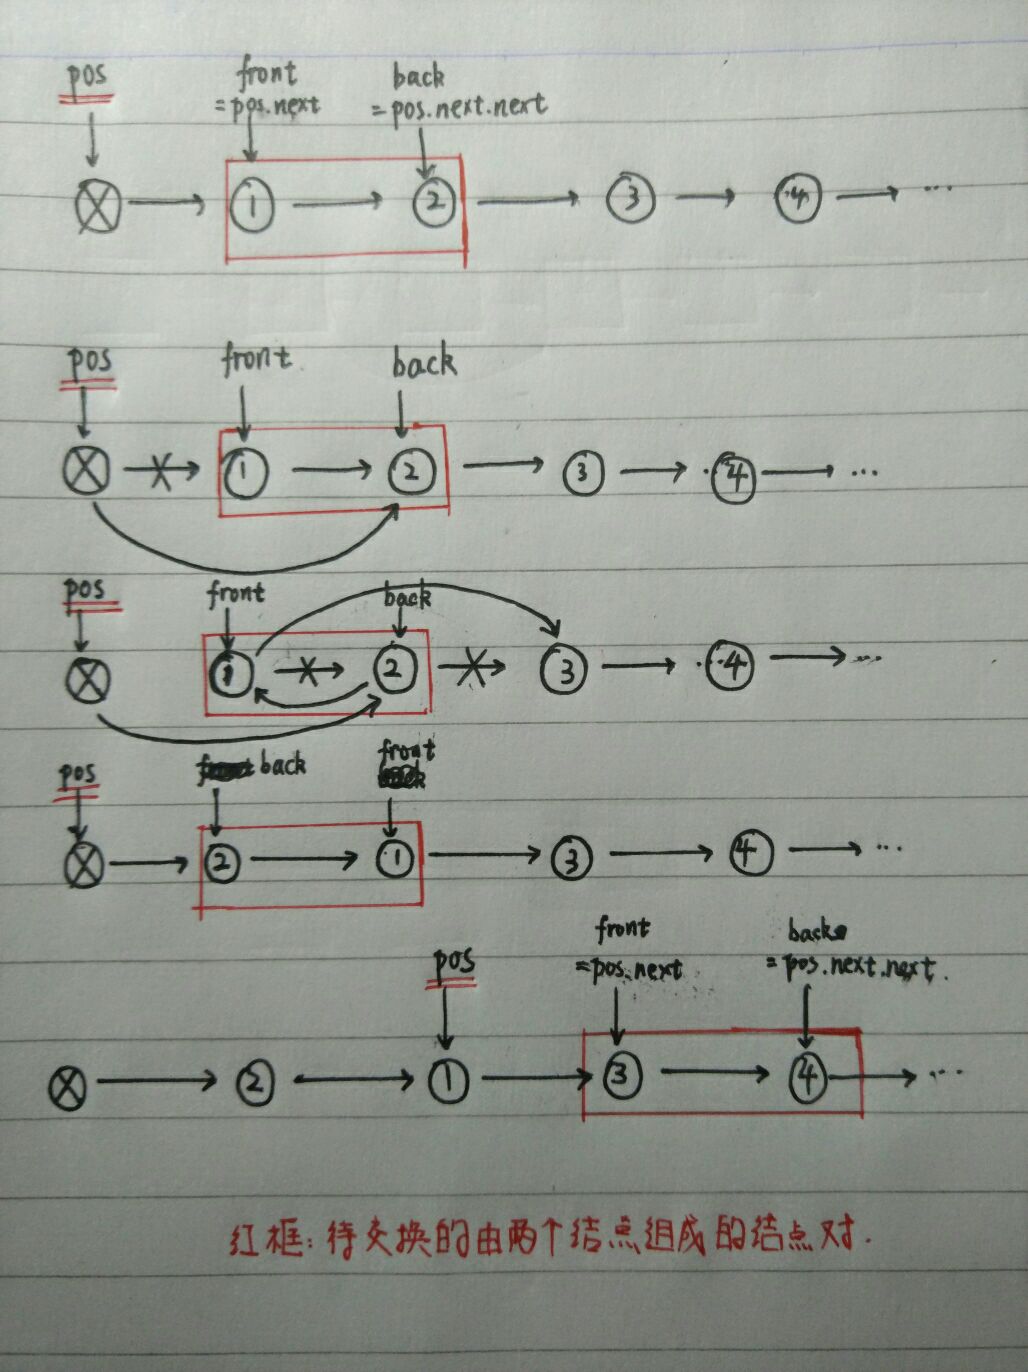 pos front back
=pos.next =pos.next.next
① ② ③ ④ ...
pos front back
① ② ③ ④ ...
pos front back
① ② ③ ④ ...
pos back front
② ① ③ ④ ...
pos front back
=pos.next =pos.next.next.
② ① ③ ④ ...
红框:待交换的由两个结点组成的结点对.